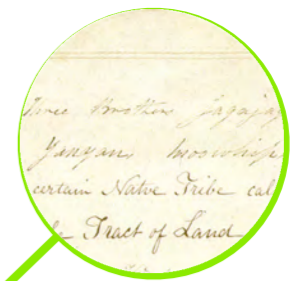 Three Brothers Jagajag
Yanyan
certain Natve Tribe cal
Tract of Land